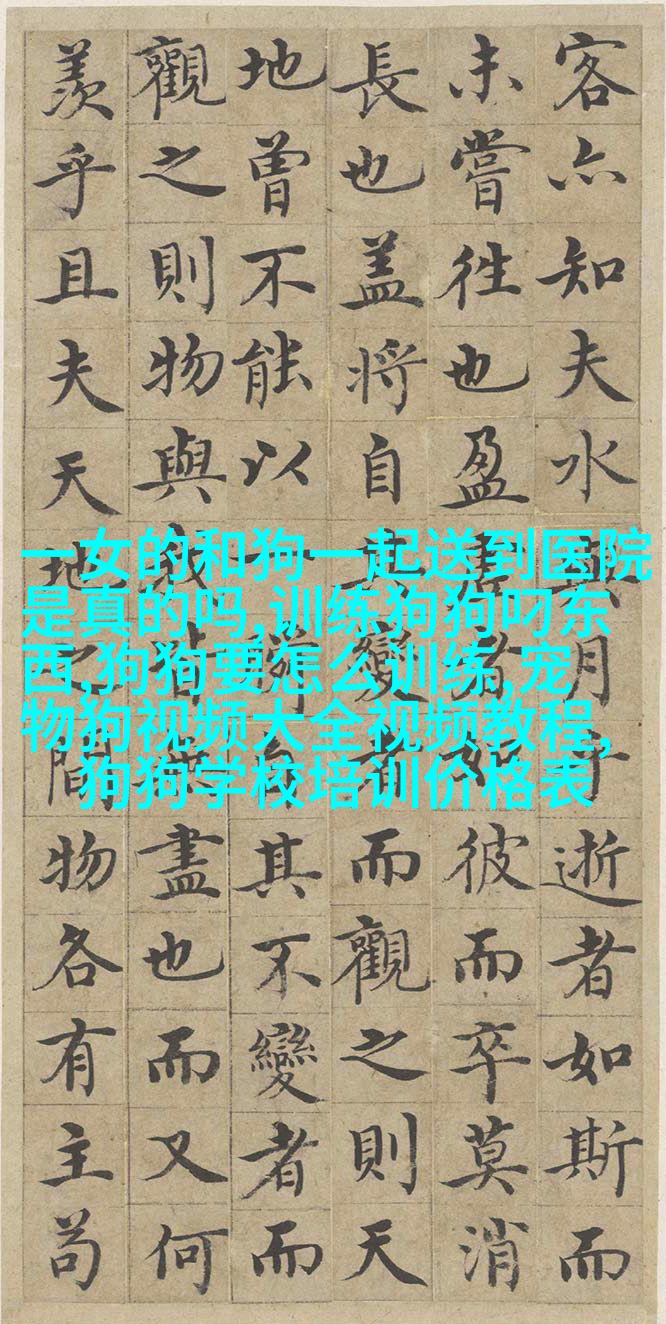 客亦知夫水與月乎逝者如斯而
未嘗往也盈虛者如彼而卒莫消
長也盖將自其變者而觀之則天
地曾不能以一瞬自其不變者而
觀之則物與我皆無盡也而又何
羨乎且夫天地之間物各有主苟
一女的和狗一起送到医院
是真的吗,训练狗狗叼东
西,狗狗要怎么训练,宠
物狗视频大全视频教程,
狗狗学校培训价格表